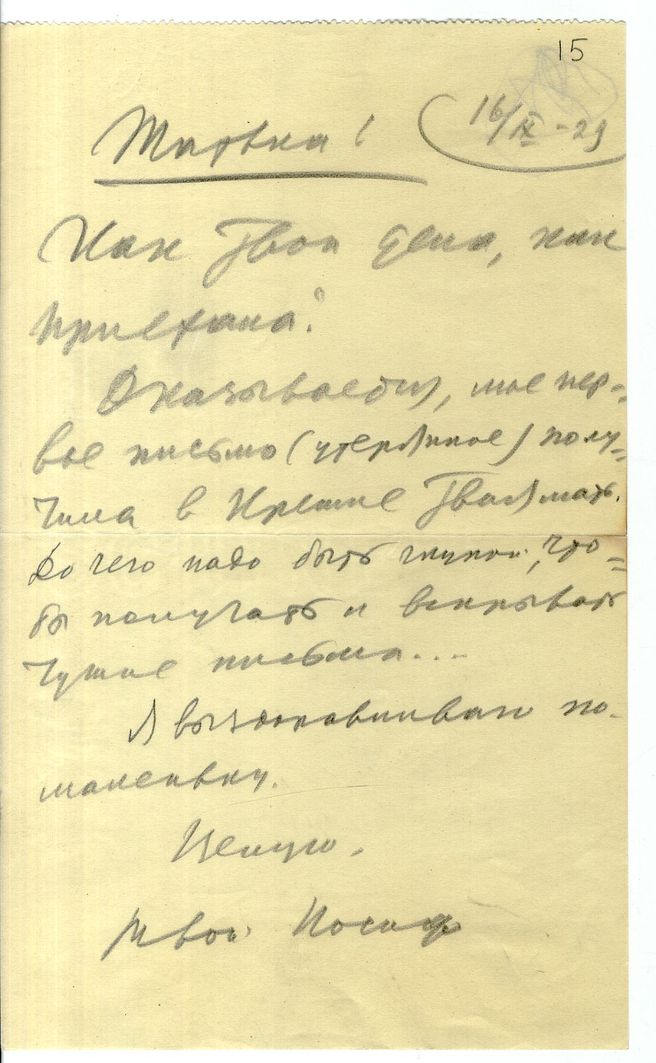 15
16/IX – 29
Татька!
Как твои дела, как
приехала?
Оказывается, мое пер-
вое письмо (утерянное) полу-
чила в Кремле твоя мать.
До чего надо быть глупой, что-
бы получать и вскрывать
чужие письма....
Я выздоравливаю по-
маленьку.
Целую.
Твой Иосиф